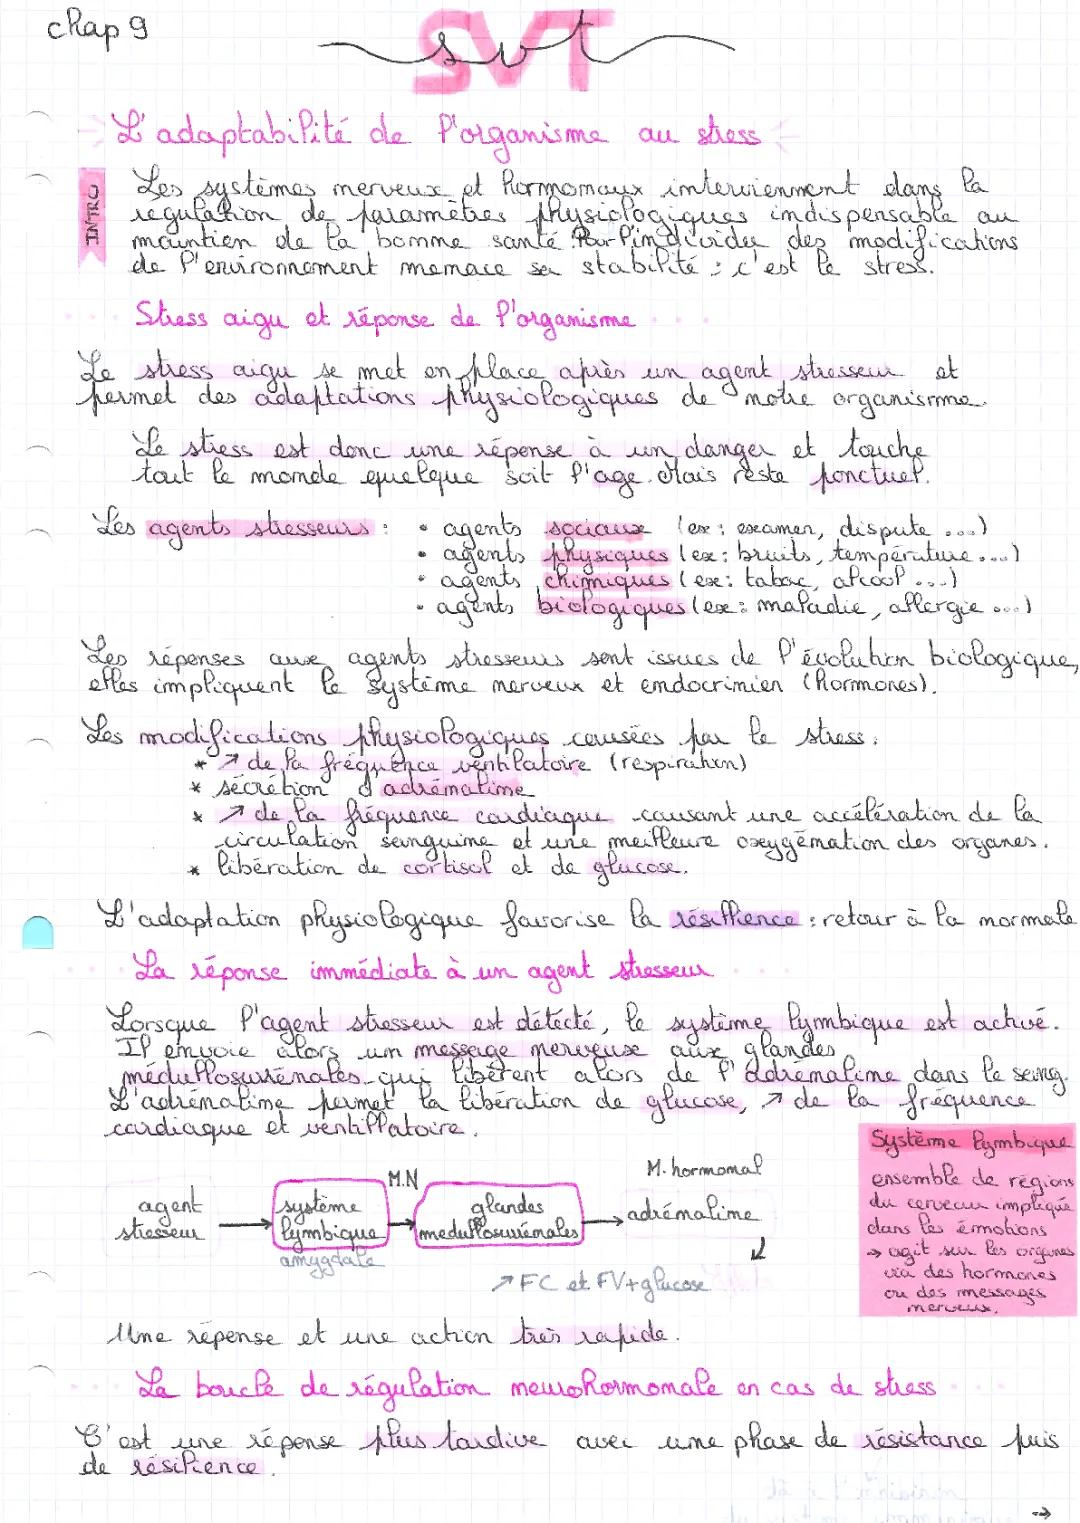 chap 9
SVT
svt
L'adaptabilité de l'organisme au stress
INTRO
Les systèmes nerveux et hormonaux interviennent dans la
régulation de paramètres physiologiques indispensable au
maintien de la bonne santé. Pour l'individu des modifications
de l'environnement menace sa stabilité : c'est le stress.
Stress aigu et réponse de l'organisme
Le stress aigu se met en place après un agent stresseur et
permet des adaptations physiologiques de notre organisme.
Le stress est donc une réponse à un danger et touche
tout le monde quelque soit l'age. Mais reste ponctuel.
Les agents stresseurs : • agents sociaux (ex : examen, dispute ...)
• agents physiques (ex : bruits, température ...)
• agents chimiques (ex : tabac, alcool ...)
• agents biologiques (ex : maladie, allergie ...)
Les réponses aux agents stresseurs sont issues de l'évolution biologique,
elles impliquent le système nerveux et endocrinien (hormones).
Les modifications physiologiques causées par le stress :
* ↗ de la fréquence ventilatoire (respiration)
* sécrétion d'adrénaline
* ↗ de la fréquence cardiaque causant une accélération de la
circulation sanguine et une meilleure oxygénation des organes.
* libération de cortisol et de glucose.
L'adaptation physiologique favorise la résillience : retour à la normale
La réponse immédiate à un agent stresseur
Lorsque l'agent stresseur est détécté, le système lymbique est activé.
Il envoie alors un message nerveuse aux glandes
médullosurrénales qui libèrent alors de l'adrénaline dans le sang.
L'adrénaline permet la libération de glucose, ↗ de la fréquence
cardiaque et ventillatoire.
agent stresseur → système lymbique → M.N glandes medullosurrénales → M. hormonal adrénaline
amygdale
↗ FC et FV + glucose
Système lymbique
ensemble de régions
du cerveau impliqué
dans les émotions
→ agit sur les organes
via des hormones
ou des messages
nerveux.
Une réponse et une action très rapide.
La boucle de régulation neurohormonale en cas de stress
C'est une réponse plus tardive avec une phase de résistance puis
de résilience.
→